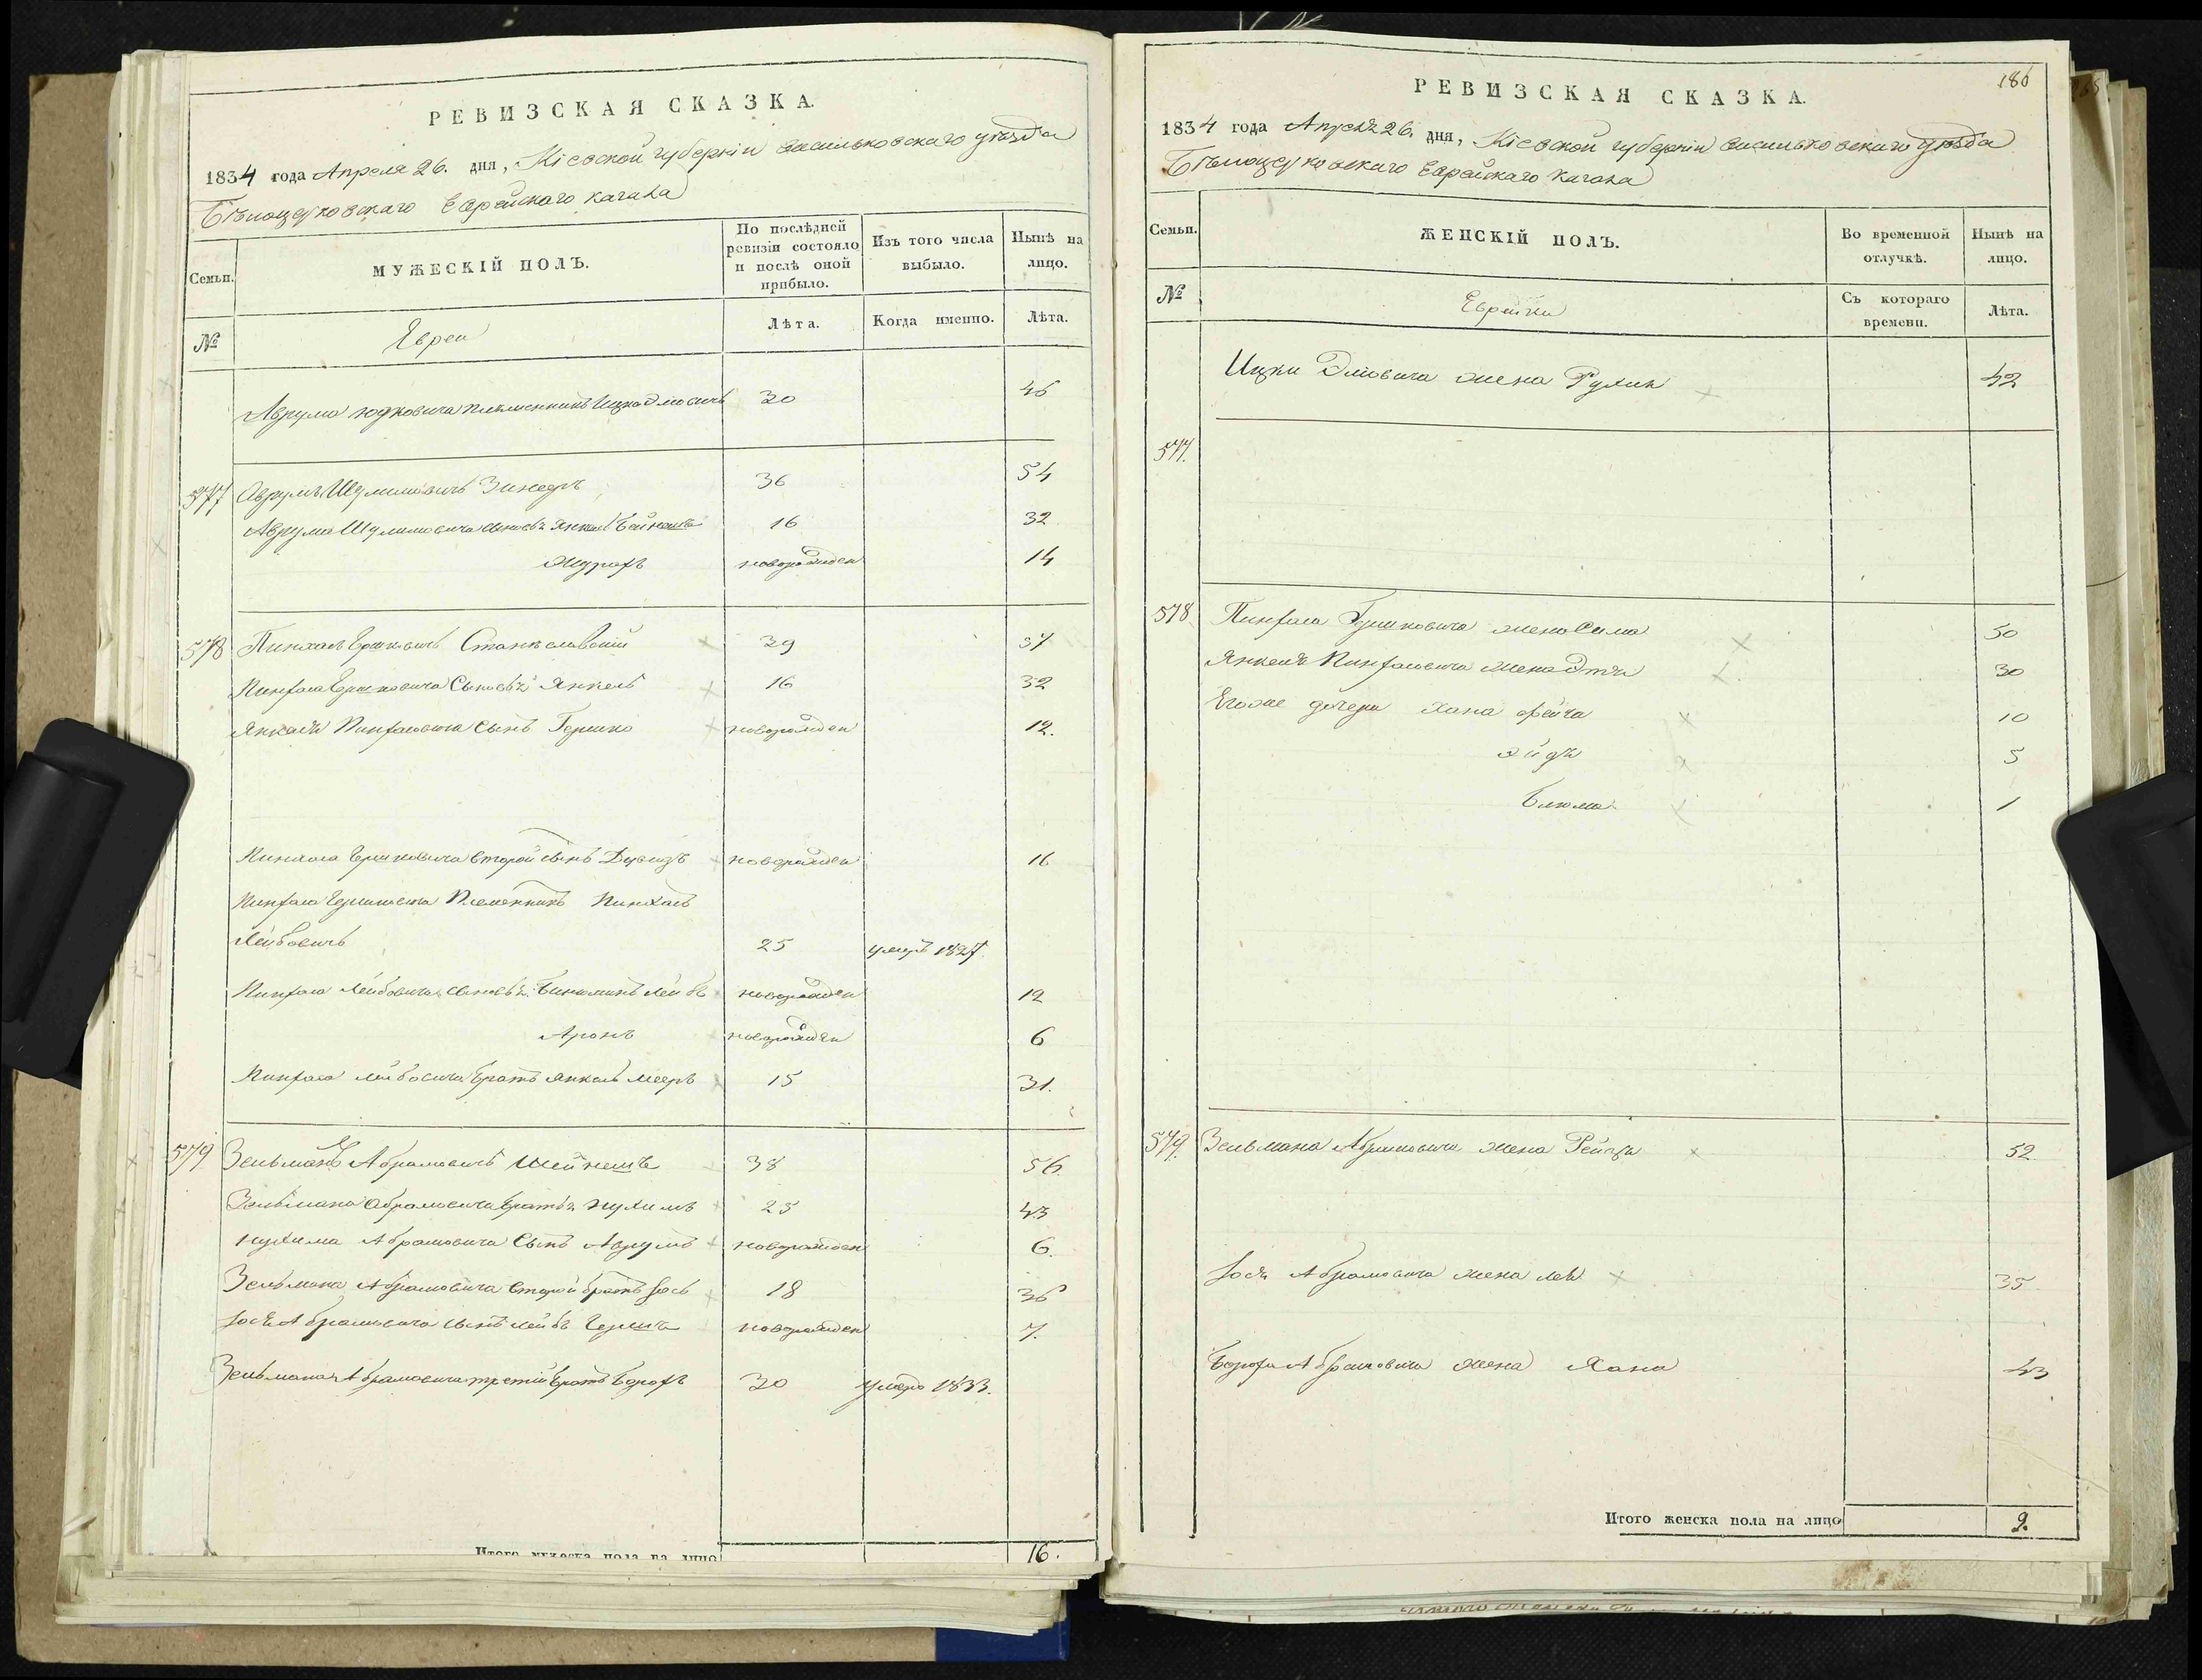 РЕВИЗСКАЯ СКАЗКА.
1834 года Апреля 26. дня, Кіевской губерніи Васильковскаго уѣзда
Бѣлоцерковскаго Еврейскаго Кагала
Семьи.
МУЖЕСКІЙ ПОЛЪ.
По послѣдней ревизіи состояло и послѣ оной прибыло.
Изъ того числа выбыло.
Нынѣ на лицо.
№
Евреи
Лѣта.
Когда именно.
Лѣта.
Аврума Юдковича племенникъ Ицко 30 46
577 Аврумъ Шулимовичъ 36 54
Аврума Шулимовича сыновья Янкель 16 32
новорожден 14
578 Пинхасъ Гершковичъ Станиславскій 39 57
Пинхаса Гершковича Сыновья Янкель 16 32
Янкеля Пинхасовича Сынъ Гершко новорожден 12.
Пинхаса Гершковича второй сынъ новорожден 16
Пинхаса Гершковича Племенникъ Пинхасъ
Лейбовичъ 25 умеръ 1827.
Пинхаса Лейбовича сыновья Биниаминъ Лейбъ новорожден 12
Аронъ новорожден 6
Пинхаса Лейбовича братъ Янкель Мееръ 15 31.
579 Зельманъ Абрамовичъ 38 56.
Зельмана Абрамовича братья Нухимъ 25 43
Нухима Абрамовича Сынъ Аврумъ новорожден 6.
Зельмана Абрамовича второй братъ Іось 18 36
Іося Абрамовича сынъ Лейбъ новорожден 7.
Зельмана Абрамовича третій братъ Борохъ 30 умеръ 1833.
Итого мужеска пола на лицо 16.
186
РЕВИЗСКАЯ СКАЗКА.
1834 года Апреля 26. дня, Кіевской губерніи Васильковскаго уѣзда
Бѣлоцерковскаго Еврейскаго Кагала
Семьи.
ЖЕНСКІЙ ПОЛЪ.
Во временной отлучкѣ.
Нынѣ на лицо.
№
Еврейки
Съ котораго времени.
Лѣта.
Ицки жена 42
577.
578 Пинхаса Гершковича жена Сима 50
Янкеля Пинхасовича жена 30
Егоже дочери Хана Фейга 10
5
Блюма 1
579. Зельмана Абрамовича жена Рейзя 52
Іося Абрамовича жена Лея 35
Бороха Абрамовича жена Хана 43
Итого женска пола на лицо 9.